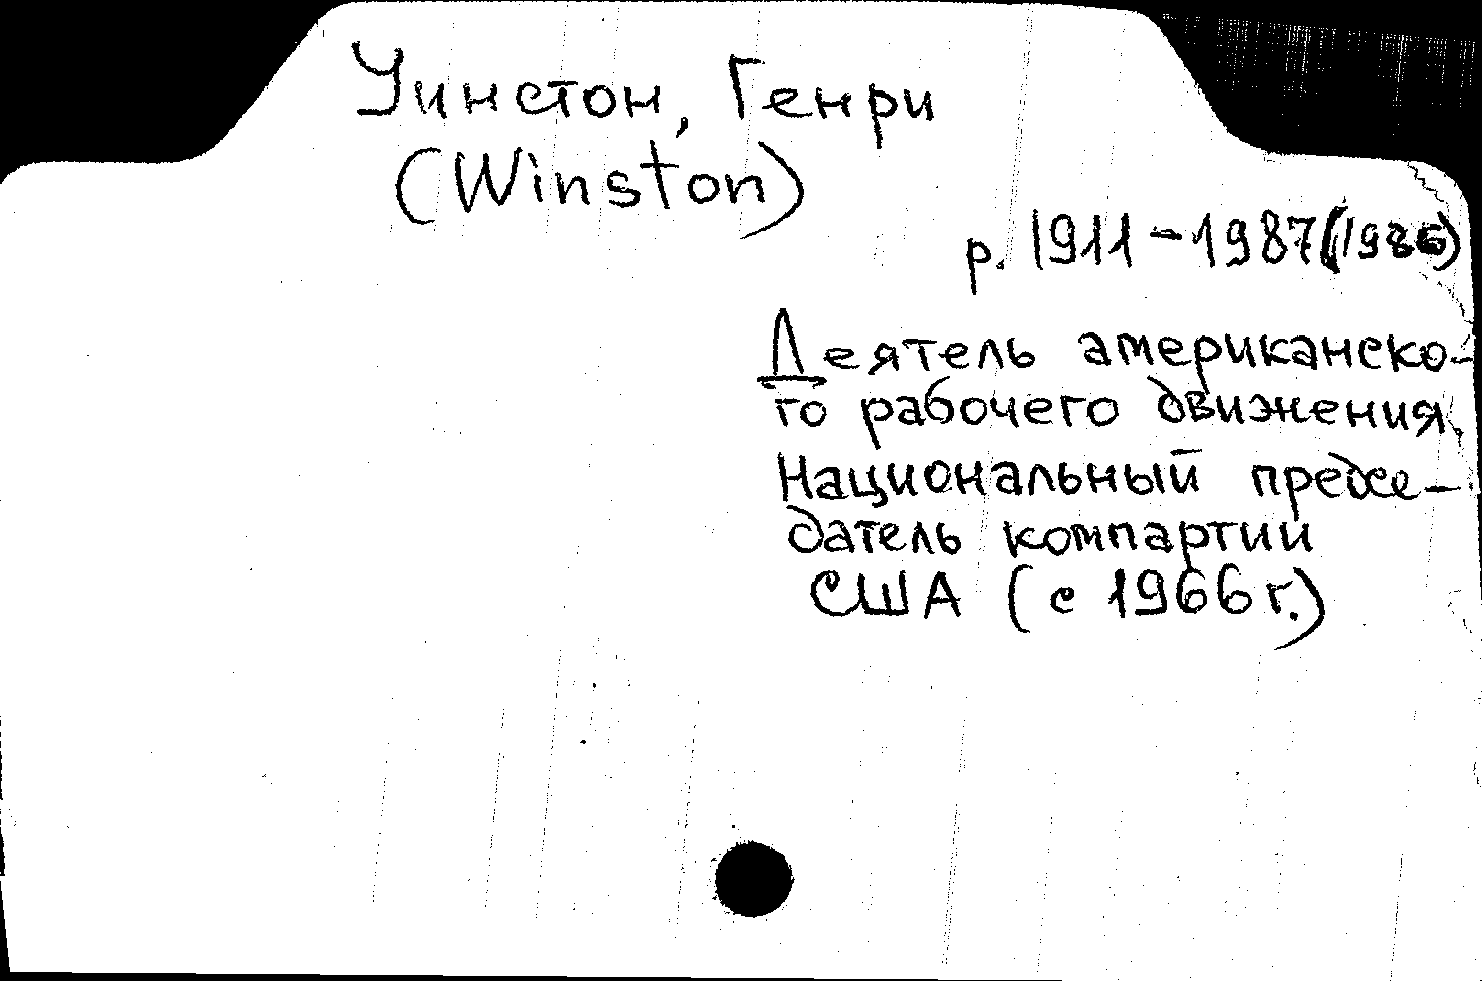 Уинстон, Генри
(Winston)
р. 1911-1987(1986)
Деятель американско-
го рабочего движения.
Национальный предсе-
датель компартии
США (с 1966 г.)